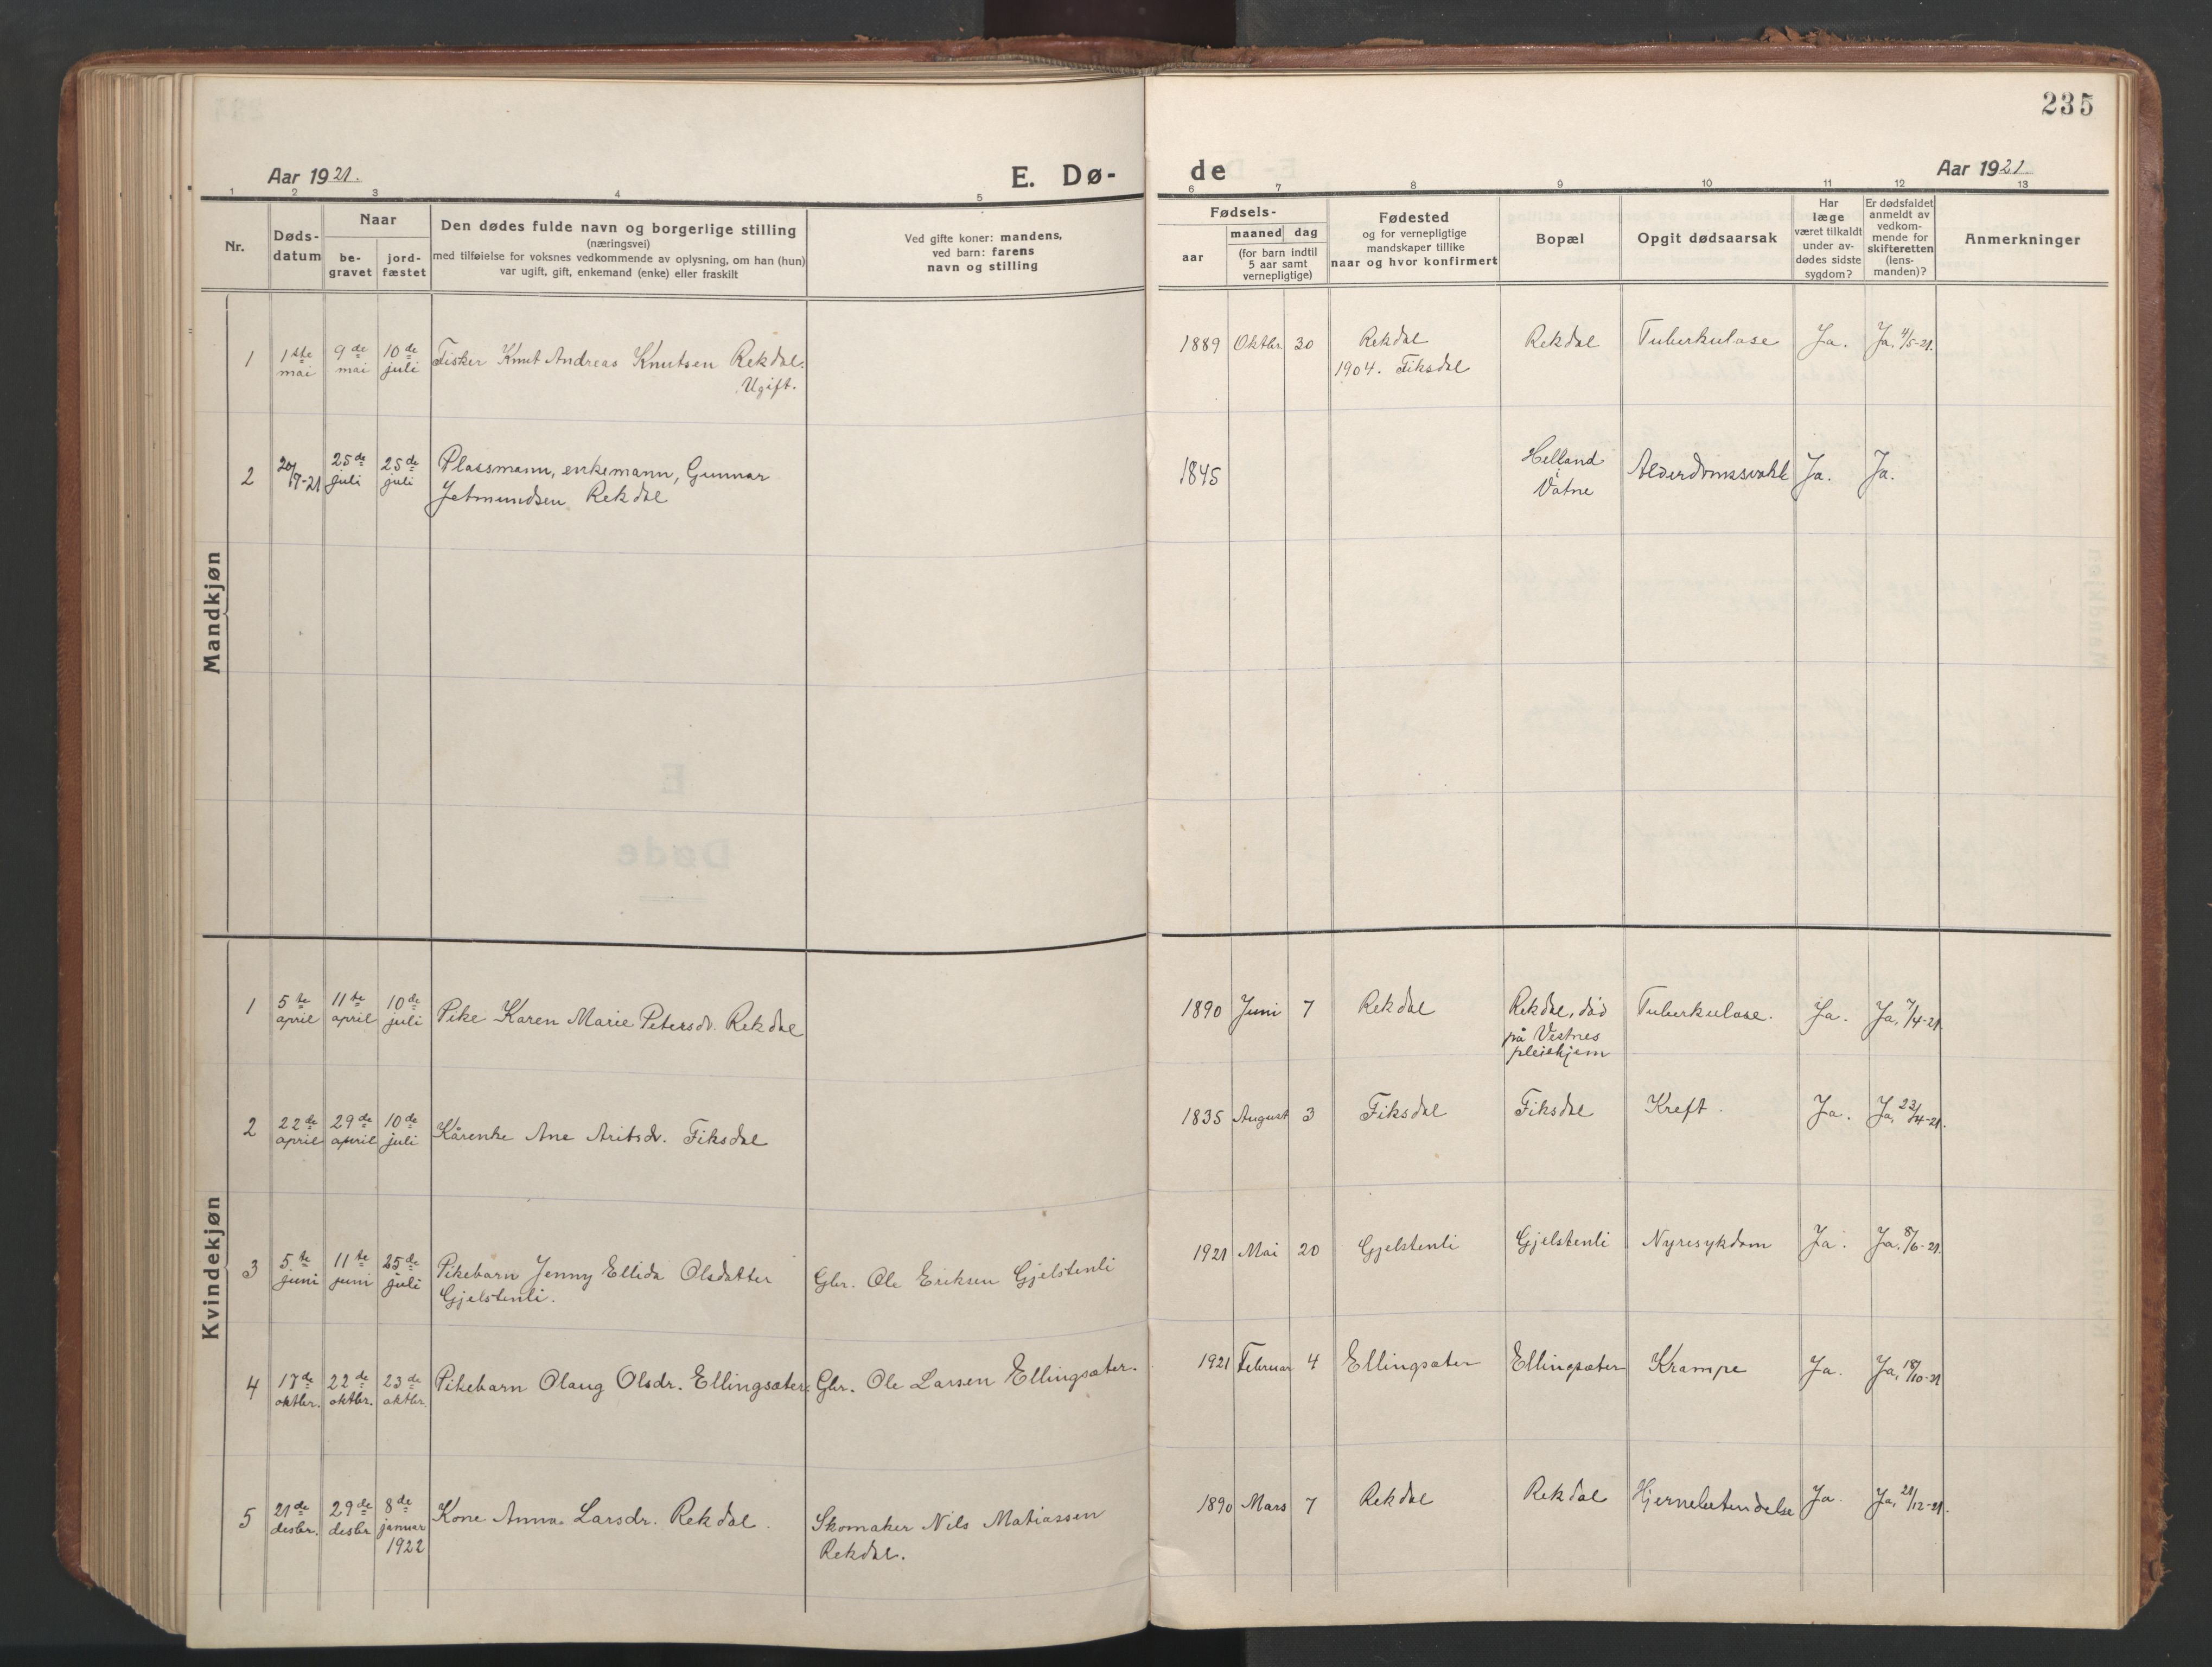 235
Aar 1921.
E. Dø-
de
Aar 1921
1 2 3 4 5 6 7 8 9 10 11 12 13
Nr.
Døds-
datum
Naar
be-
gravet
jord-
fæstet
Den dødes fulde navn og borgerlige stilling
(næringsvei)
med tilføielse for voksnes vedkommende av oplysning, om han (hun)
var ugift, gift, enkemand (enke) eller fraskilt
Ved gifte koner: mandens,
ved barn: farens
navn og stilling
Fødsels-
aar
maaned dag
(for barn indtil
5 aar samt
vernepligtige)
Fødested
og for vernepligtige
mandskaper tillike
naar og hvor konfirmert
Bopæl
Opgit dødsaarsak
Har
læge
været tilkaldt
under av-
dødes sidste
sygdom?
Er dødsfaldet
anmeldt av
vedkom-
mende for
skifteretten
(lens-
manden)?
Anmerkninger
Mandkjøn
1 1ste mai 9de mai 10de juli Fisker Knut Andreas Knutsen Rekdal.
Ugift.
1889 Oktbr 30 Rekdal
1904. Fiksdal
Rekdal Tuberkulose Ja. Ja, 4/5-21.
2 20/7-21 25de juli 25de juli Plassmann, enkemann, Gunnar
Jetmundsen Rekdal
1845 Helland
i
Vatne
Alderdomssvakh Ja. Ja.
Kvindekjøn
1 5te april 11te april 10de juli Pike Karen Marie Petersdr. Rekdal
1890 Juni 7 Rekdal Rekdal, død
på Vestnes
pleiehjem
Tuberkulose. Ja. Ja, 7/4-21.
2 22de april 29de april 10de juli Kårenke Ane Aritsdr. Fiksdal
1835 August 3 Fiksdal Fiksdal Kreft. Ja. Ja, 23/4-21.
3 5te juni 11te juni 25de juli Pikebarn Jenny Ellida Olsdatter
Gjelstenli.
Gbr. Ole Eriksen Gjelstenli
1921 Mai 20 Gjelstenli Gjelstenli Nyresykdom Ja. Ja. 8/6-21.
4 17de oktbr. 22de oktbr. 23de oktbr. Pikebarn Olaug Olsdr. Ellingsæter. Gbr. Ole Larsen Ellingsæter.
1921 Februar 4 Ellingsæter Ellingsæter Krampe Ja. Ja, 18/10-21
5 21de desbr. 29de desbr 8de januar 1922 Kone Anna Larsdr. Rekdal. Skomaker Nils Matiassen
Rekdal.
1890 Mars 7 Rekdal Rekdal Hjernebetendelse Ja. Ja, 21/12-21.